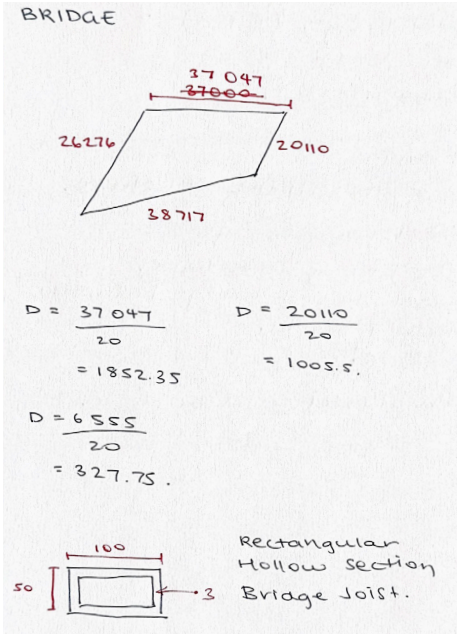 BRIDGE
37 047
37000
26276
20110
38717
D = 37 047
20
= 1852.35
D = 20110
20
= 1005.5.
D = 6555
20
= 327.75.
100
50
3
Rectangular
Hollow section
Bridge Joist.